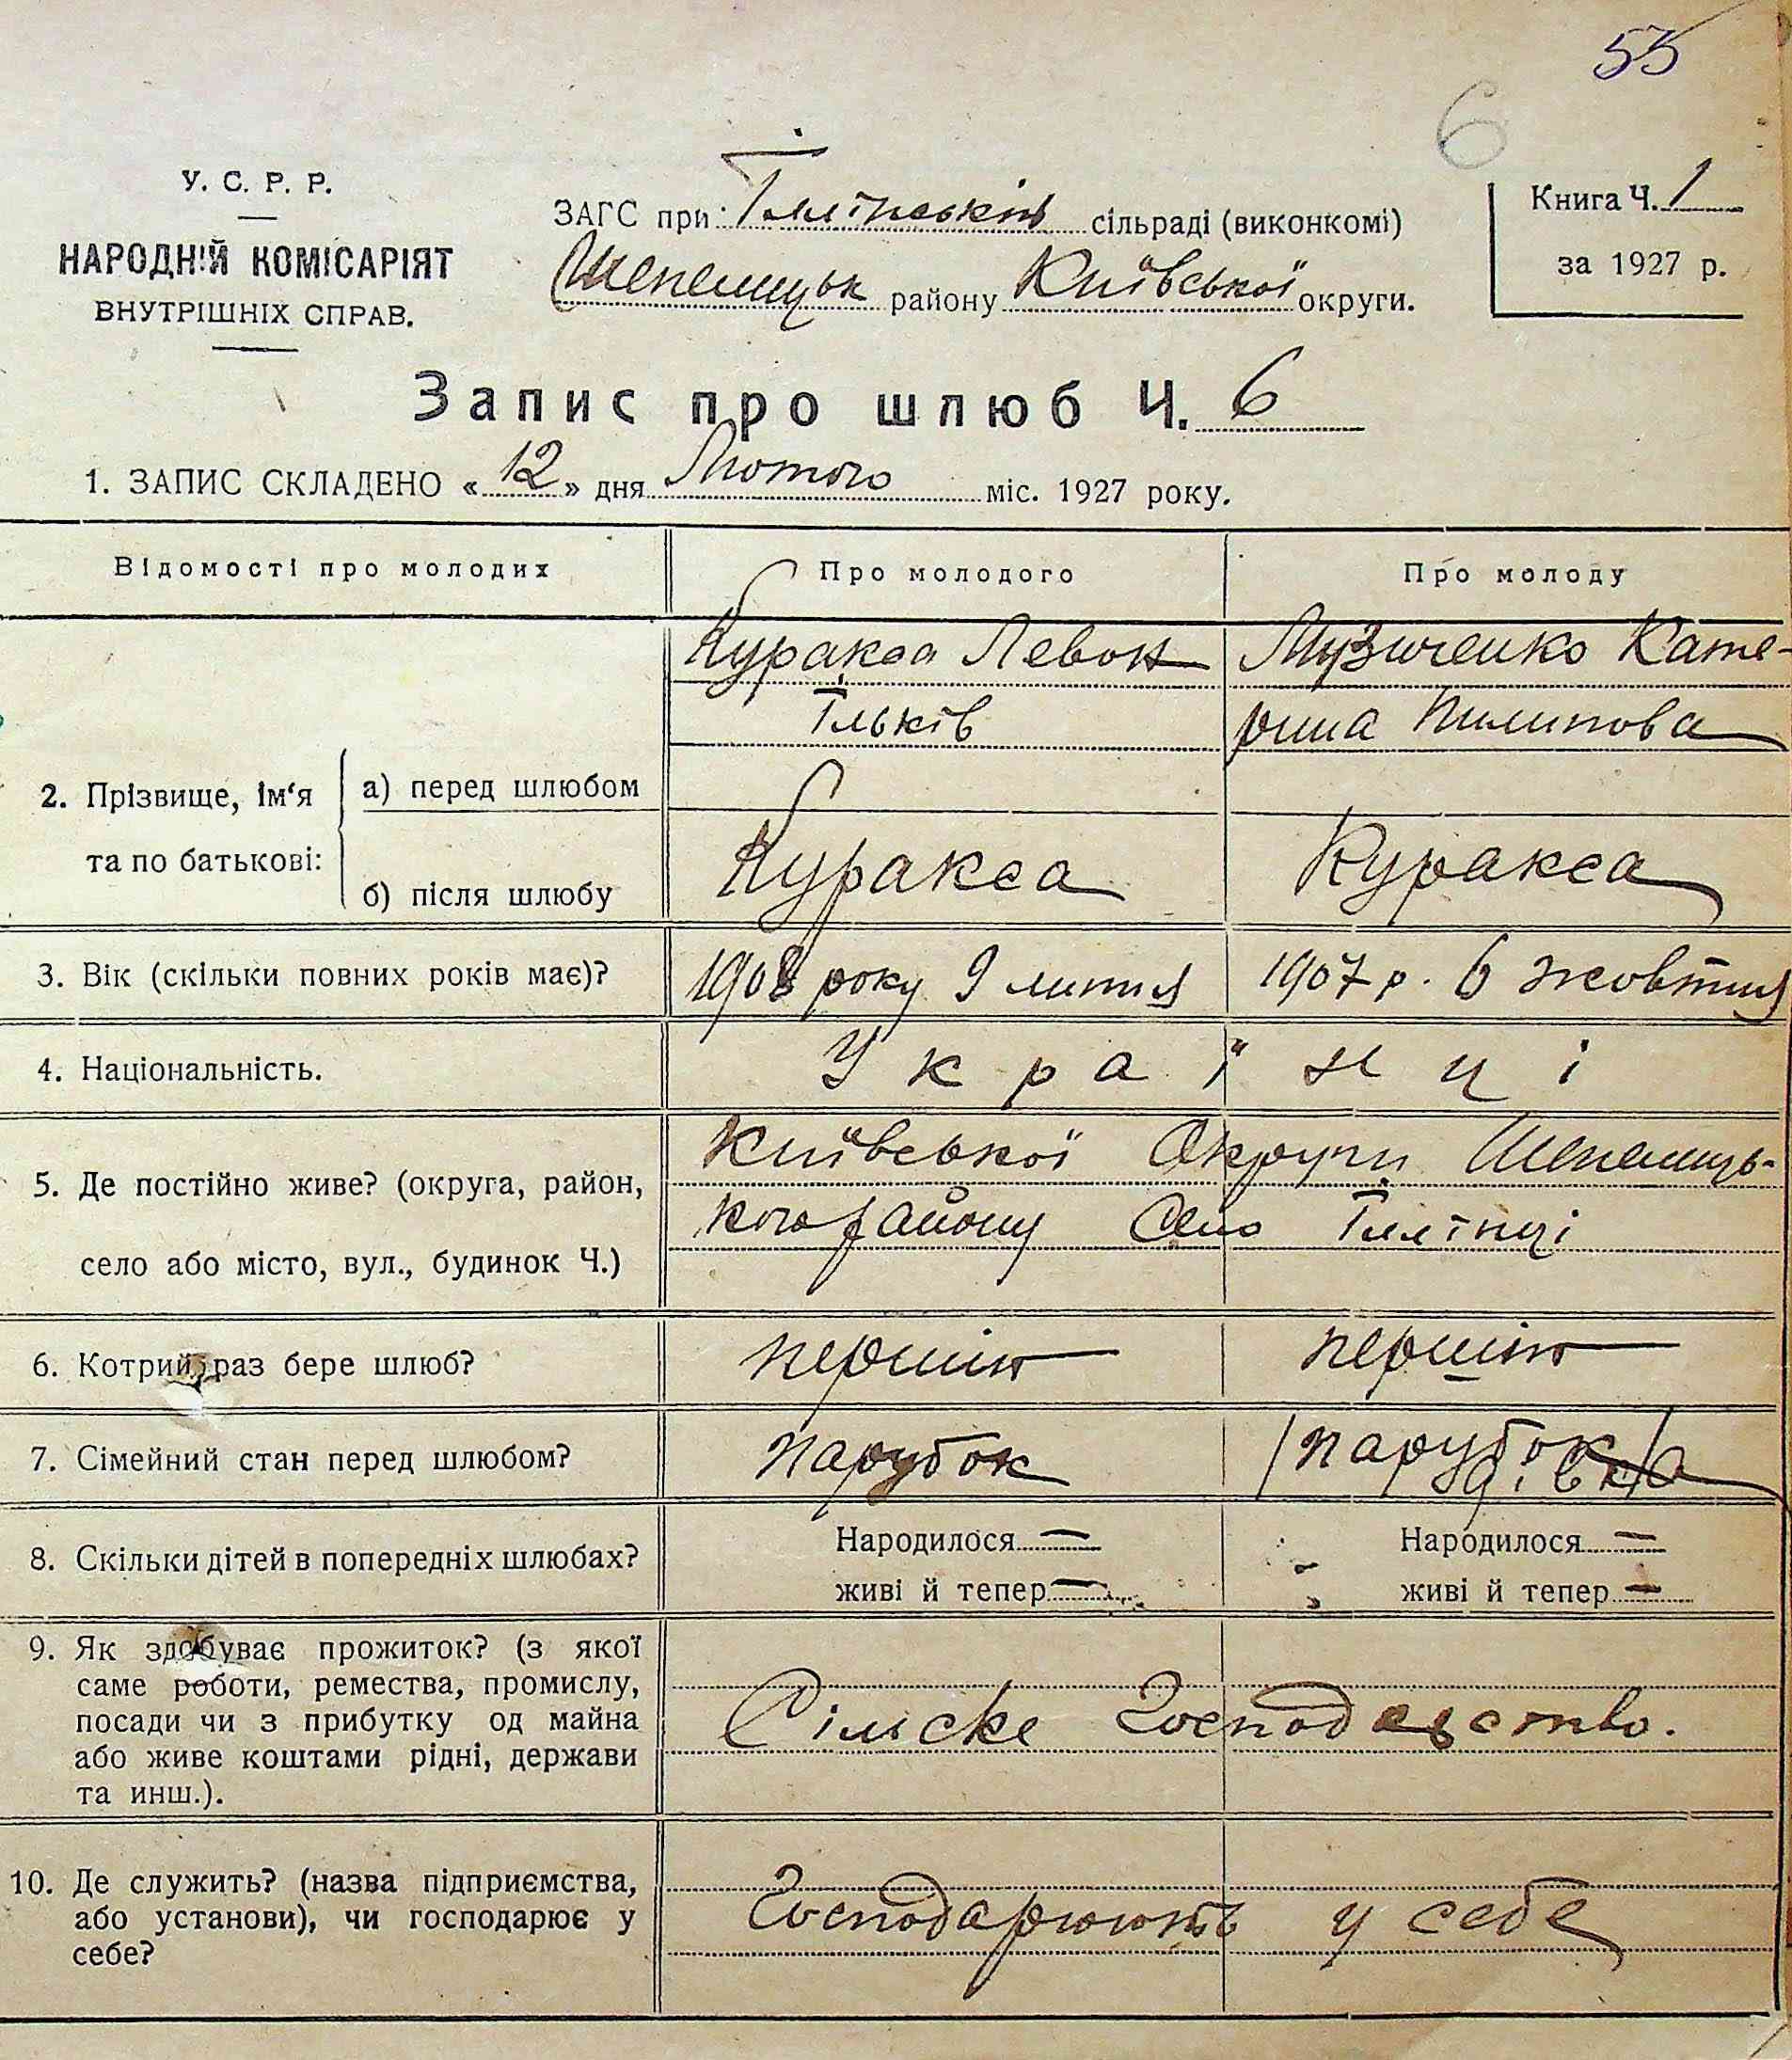 55
6
У. С. Р. Р.
НАРОДНІЙ КОМІСАРІЯТ
ВНУТРІШНІХ СПРАВ.
ЗАГС при: сільраді (виконкомі)
Шепелицьк району Київської округи.
Книга Ч. 1
за 1927 р.
Запис про шлюб Ч. 6
1. ЗАПИС СКЛАДЕНО «12» дня Лютого міс. 1927 року.
Відомості про молодих
Про молодого
Про молоду
2. Прізвище, ім‘я та по батькові:
а) перед шлюбом
Куракса Левон
Ільків
Музиченко Кате-
рина Пилипова
б) після шлюбу
Куракса
Куракса
3. Вік (скільки повних років має)?
1908 року 9 липня
1907 р. 6 жовтня
4. Національність.
Українці
5. Де постійно живе? (округа, район,
село або місто, вул., будинок Ч.)
Київської Округи Шепелиць-
кого району Село Іллінці
6. Котрий раз бере шлюб?
перший
перший
7. Сімейний стан перед шлюбом?
парубок
/парубок/
дівка
8. Скільки дітей в попередніх шлюбах?
Народилося —
живі й тепер —
Народилося —
живі й тепер —
9. Як здобуває прожиток? (з якої
саме роботи, ремества, промислу,
посади чи з прибутку од майна
або живе коштами рідні, держави
та инш.).
Сільске Господарство.
10. Де служить? (назва підприємства,
або установи), чи господарює у
себе?
Господарюють у себе